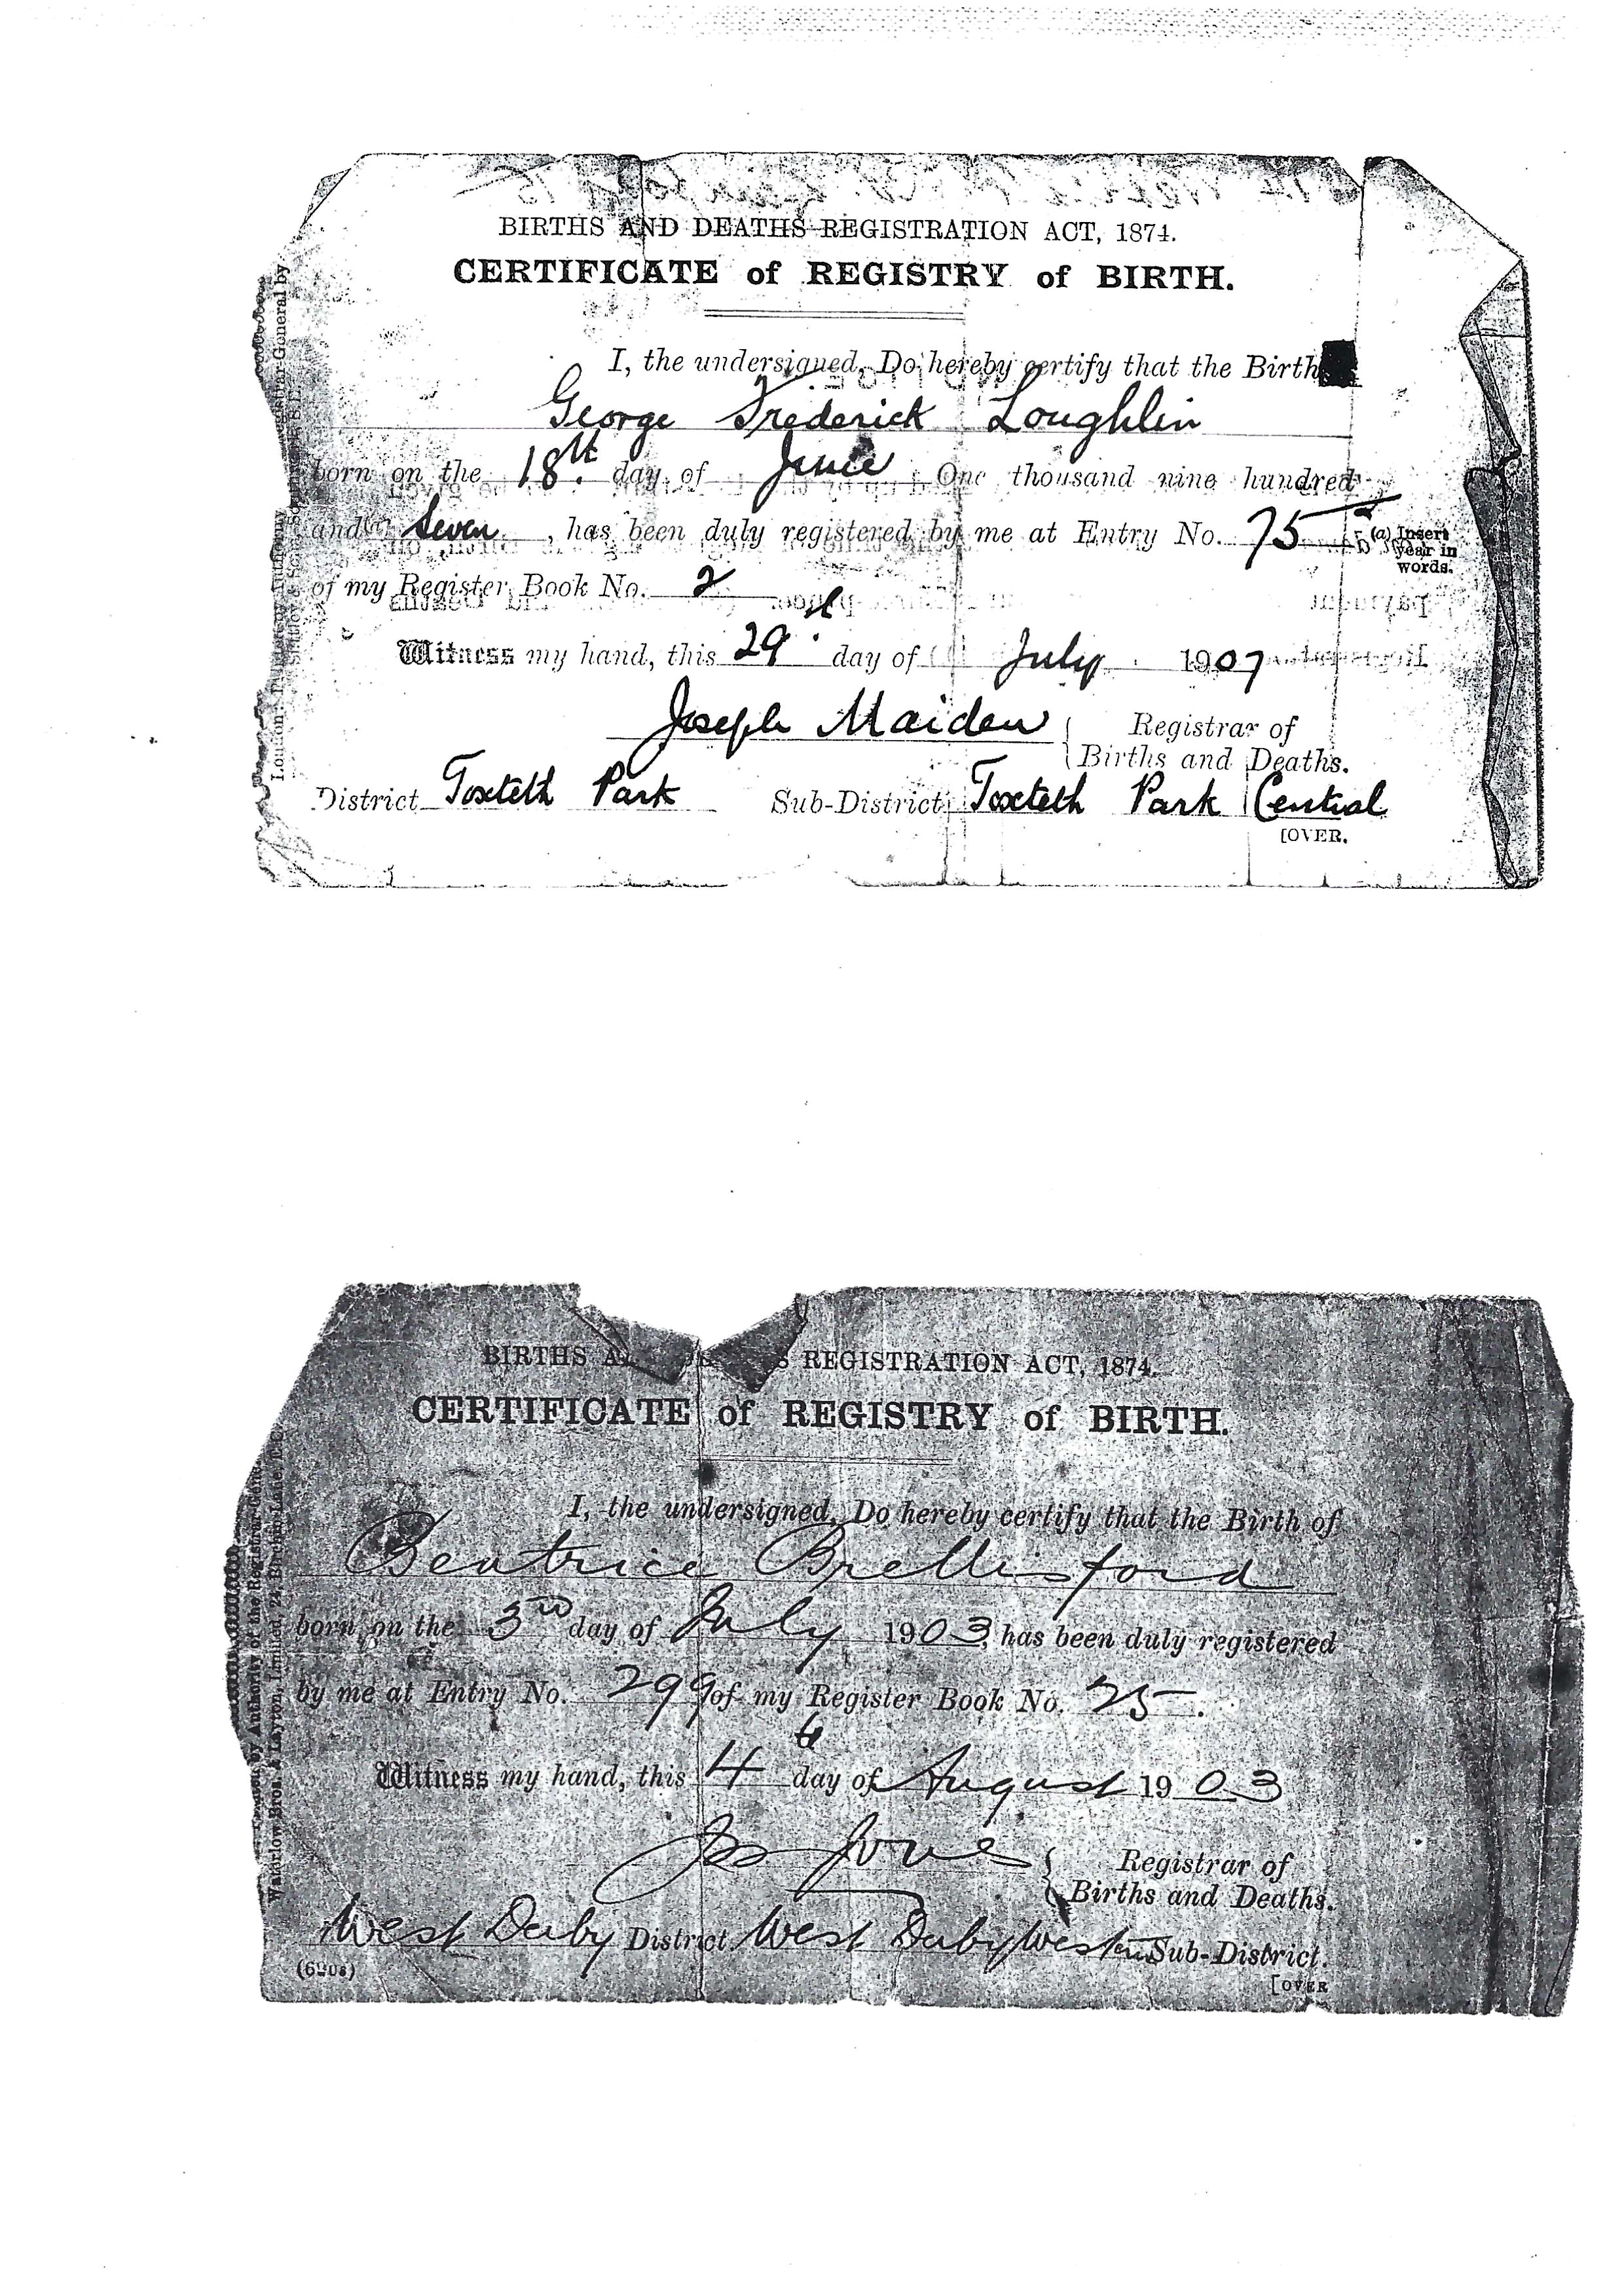 BIRTHS AND DEATHS REGISTRATION ACT, 1874.
CERTIFICATE of REGISTRY of BIRTH.
I, the undersigned, Do hereby certify that the Birth
George Frederick Loughlin
born on the 18th. day of June One thousand nine hundred
and (a) Seven, has been duly registered by me at Entry No. 75
(a) Insert year in words.
of my Register Book No. 2
Witness my hand, this 29th day of July 1907
Joseph Maiden Registrar of
Births and Deaths.
District Toxteth Park Sub-District Toxteth Park Central
[OVER.
BIRTHS REGISTRATION ACT, 1874.
CERTIFICATE of REGISTRY of BIRTH.
I, the undersigned, Do hereby certify that the Birth of
Beatrice Brellisford
born on the 3rd day of July 1903, has been duly registered
by me at Entry No. 299 of my Register Book No. 25.
Witness my hand, this 4th day of August 1903
Jones Registrar of
Births and Deaths.
West Derby District West Derby Western Sub-District.
[OVER
by Authority of the Registrar
Waterlow Bros. & Layton, Limited, 24, Birchin Lane,